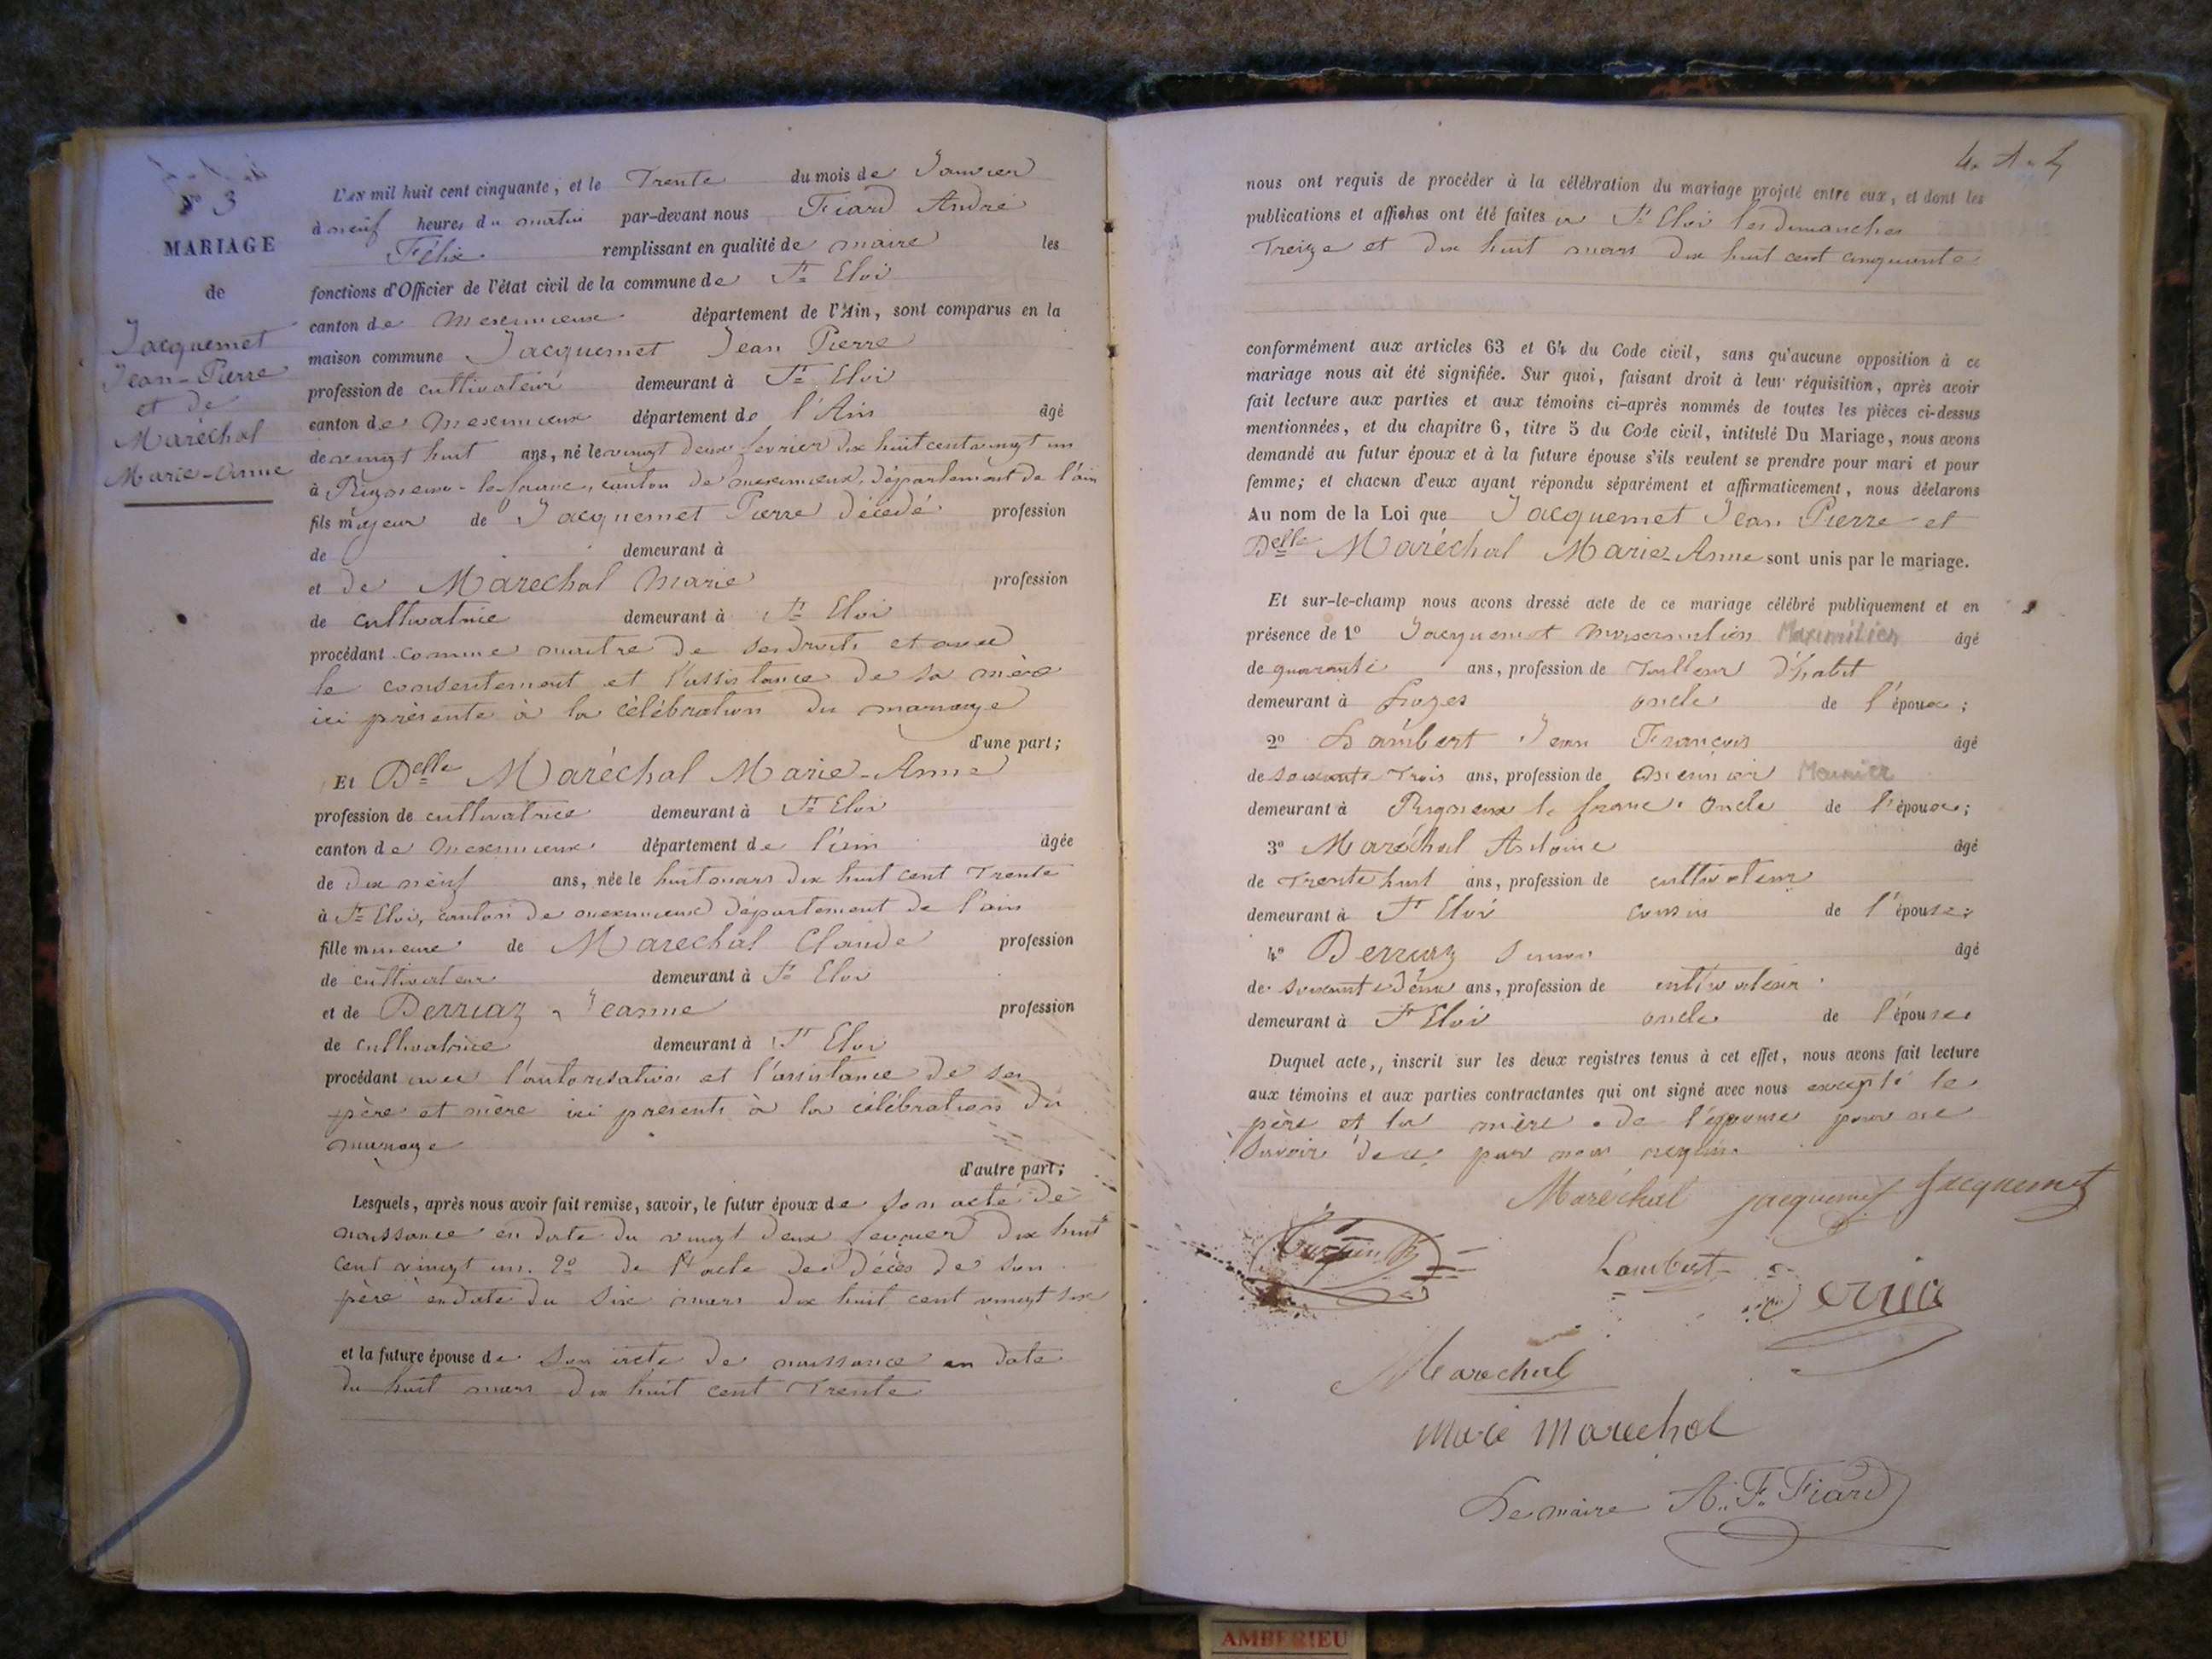 N° 3
MARIAGE
de
Jacquemet
Jean-Pierre
et de
Maréchal
Marie-Anne
L'AN mil huit cent cinquante, et le Trente du mois de Janvier
à neuf heures du matin par-devant nous Fiard André
Félix remplissant en qualité de maire les
fonctions d'Officier de l'état civil de la commune de St Eloi
canton de Meximieux département de l'Ain, sont comparus en la
maison commune Jacquemet Jean Pierre
profession de cultivateur demeurant à St Eloi
canton de Meximieux département de l'Ain âgé
de vingt huit ans, né le vingt deux fevrier dix huit cent vingt un
à Rignieux-le-franc, canton de meximieux, département de l'ain
fils majeur de Jacquemet Pierre décédé profession
de demeurant à
et de Marechal Marie profession
de cultivatrice demeurant à St Eloi
procédant comme maitre de ses droits et avec
le consentement et l'assistance de sa mère
ici présente à la célébration du mariage
d'une part;
Et Delle Maréchal Marie-Anne
profession de cultivatrice demeurant à St Eloi
canton de Meximieux département de l'ain âgée
de dix neuf ans, née le huit mars dix huit cent Trente
à St Eloi, canton de meximieux département de l'ain
fille mineure de Marechal Claude profession
de cultivateur demeurant à St Eloi
et de Berruaz Jeanne profession
de cultivatrice demeurant à St Eloi
procédant avec l'autorisation et l'assistance de ses
père et mère ici présents à la célébration du
mariage
d'autre part;
Lesquels, après nous avoir fait remise, savoir, le futur époux de son acte de
naissance en date du vingt deux fevrier dix huit
cent vingt un. 2° de l'acte de décès de son
père en date du six mars dix huit cent vingt six
et la future épouse de son acte de naissance en date
du huit mars dix huit cent Trente
nous ont requis de procéder à la célébration du mariage projeté entre eux, et dont les
publications et affiches ont été faites à St Eloi les dimanches
Treize et dix huit mars dix huit cent cinquante
conformément aux articles 63 et 64 du Code civil, sans qu'aucune opposition à ce
mariage nous ait été signifiée. Sur quoi, faisant droit à leur réquisition, après avoir
fait lecture aux parties et aux témoins ci-après nommés de toutes les pièces ci-dessus
mentionnées, et du chapitre 6, titre 5 du Code civil, intitulé Du Mariage, nous avons
demandé au futur époux et à la future épouse s'ils veulent se prendre pour mari et pour
femme; et chacun d'eux ayant répondu séparément et affirmativement, nous déclarons
Au nom de la Loi que Jacquemet Jean Pierre et
Delle Maréchal Marie-Anne sont unis par le mariage.
Et sur-le-champ nous avons dressé acte de ce mariage célébré publiquement et en
présence de 1° Jacquemet Maximilien âgé
de quarante ans, profession de Tailleur d'habit
demeurant à oncle de l'époux;
2° Lambert Jean François âgé
de soixante Trois ans, profession de Meunier
demeurant à Rignieux le franc oncle de l'époux;
3° Maréchal Antoine âgé
de Trente huit ans, profession de cultivateur
demeurant à St Eloi cousin de l'épouse;
4° Berruaz âgé
de soixante deux ans, profession de cultivateur
demeurant à St Eloi oncle de l'épouse
Duquel acte, inscrit sur les deux registres tenus à cet effet, nous avons fait lecture
aux témoins et aux parties contractantes qui ont signé avec nous excepté le
père et la mère de l'épouse pour ne
savoir de ce par nous requis.
Maréchal Jacquemet Jacquemet
Lambert
Marechal
Marie Marechal
Le maire A. F. Fiard
AMBERIEU